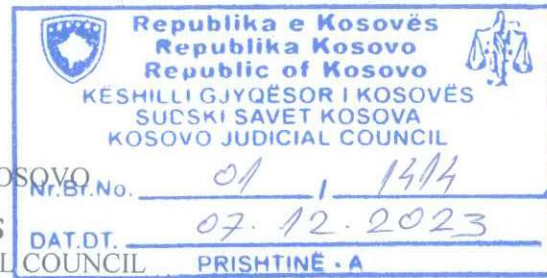 Republika e Kosovës
Republika Kosovo
Republic of Kosovo
KËSHILLI GJYQËSOR I KOSOVËS
SUDSKI SAVET KOSOVA
KOSOVO JUDICIAL COUNCIL
OSOVO
Nr.Br.No. 01 / 1414
S
DAT.DT. 07.12.2023
L COUNCIL
PRISHTINË - A